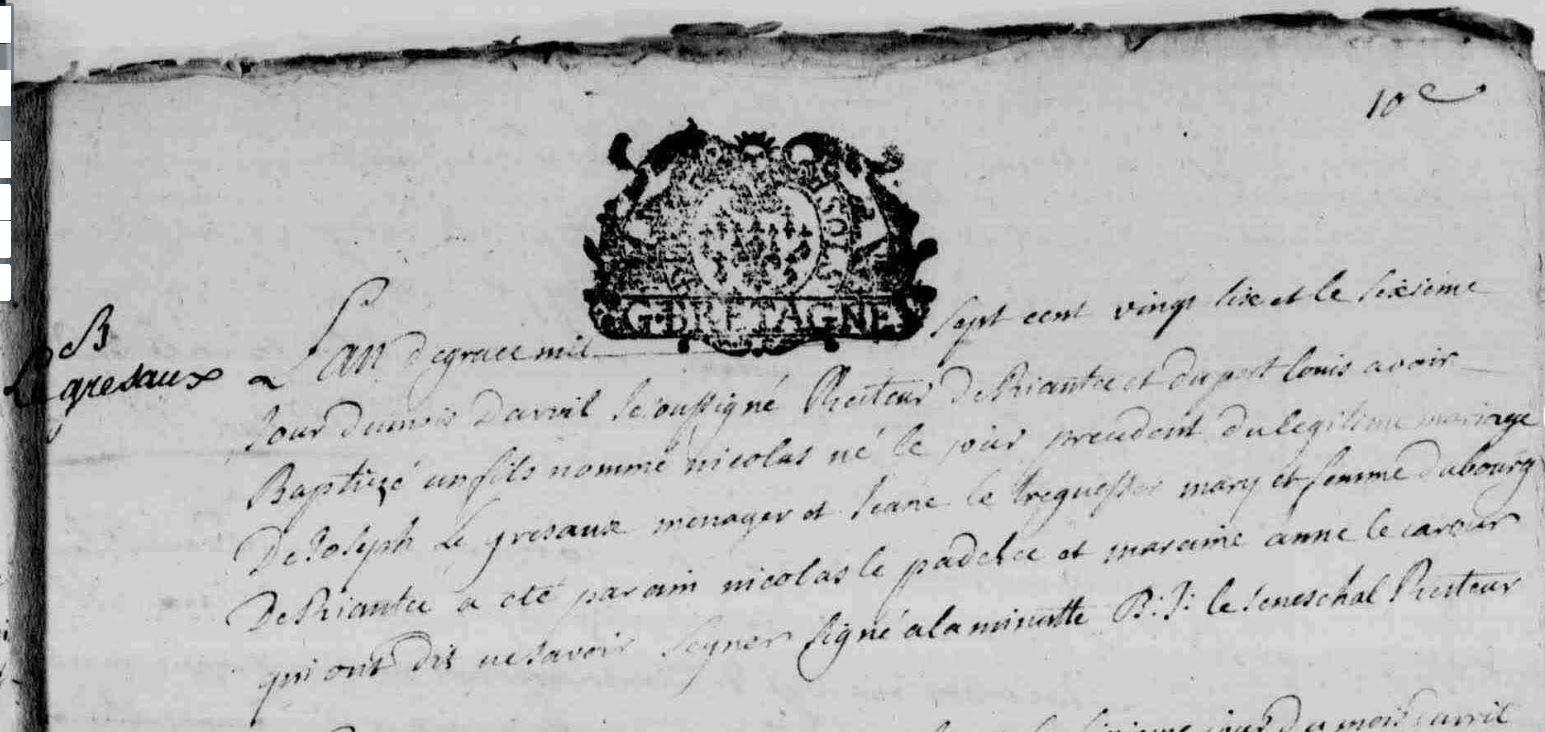 10e
SIX SOLS
G. BRETAGNE
B
Le gresaux
L'an de grace mil sept cent vingt six et le sixieme
Jour du mois Davril Je soussigné Recteur De Riantec et du port louis avoir
Baptizé un fils nommé nicolas né le jour precedent du legitime mariage
De Joseph Le gresaux menager et Jeane le treguesser mary et femme du bourg
De Riantec a été parain nicolas le padelec et maraine anne le careur
qui ont dit ne savoir signer signé a la minutte B: J: le seneschal Recteur
jour du mois davril